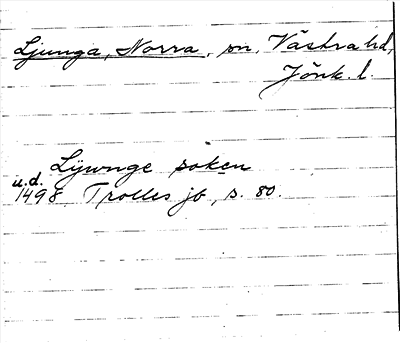 Ljunga, Norra, sn, Västra hd,
Jönk. l.
Lijwnge soken
u.d.
1498 Trolles jb, s. 80.